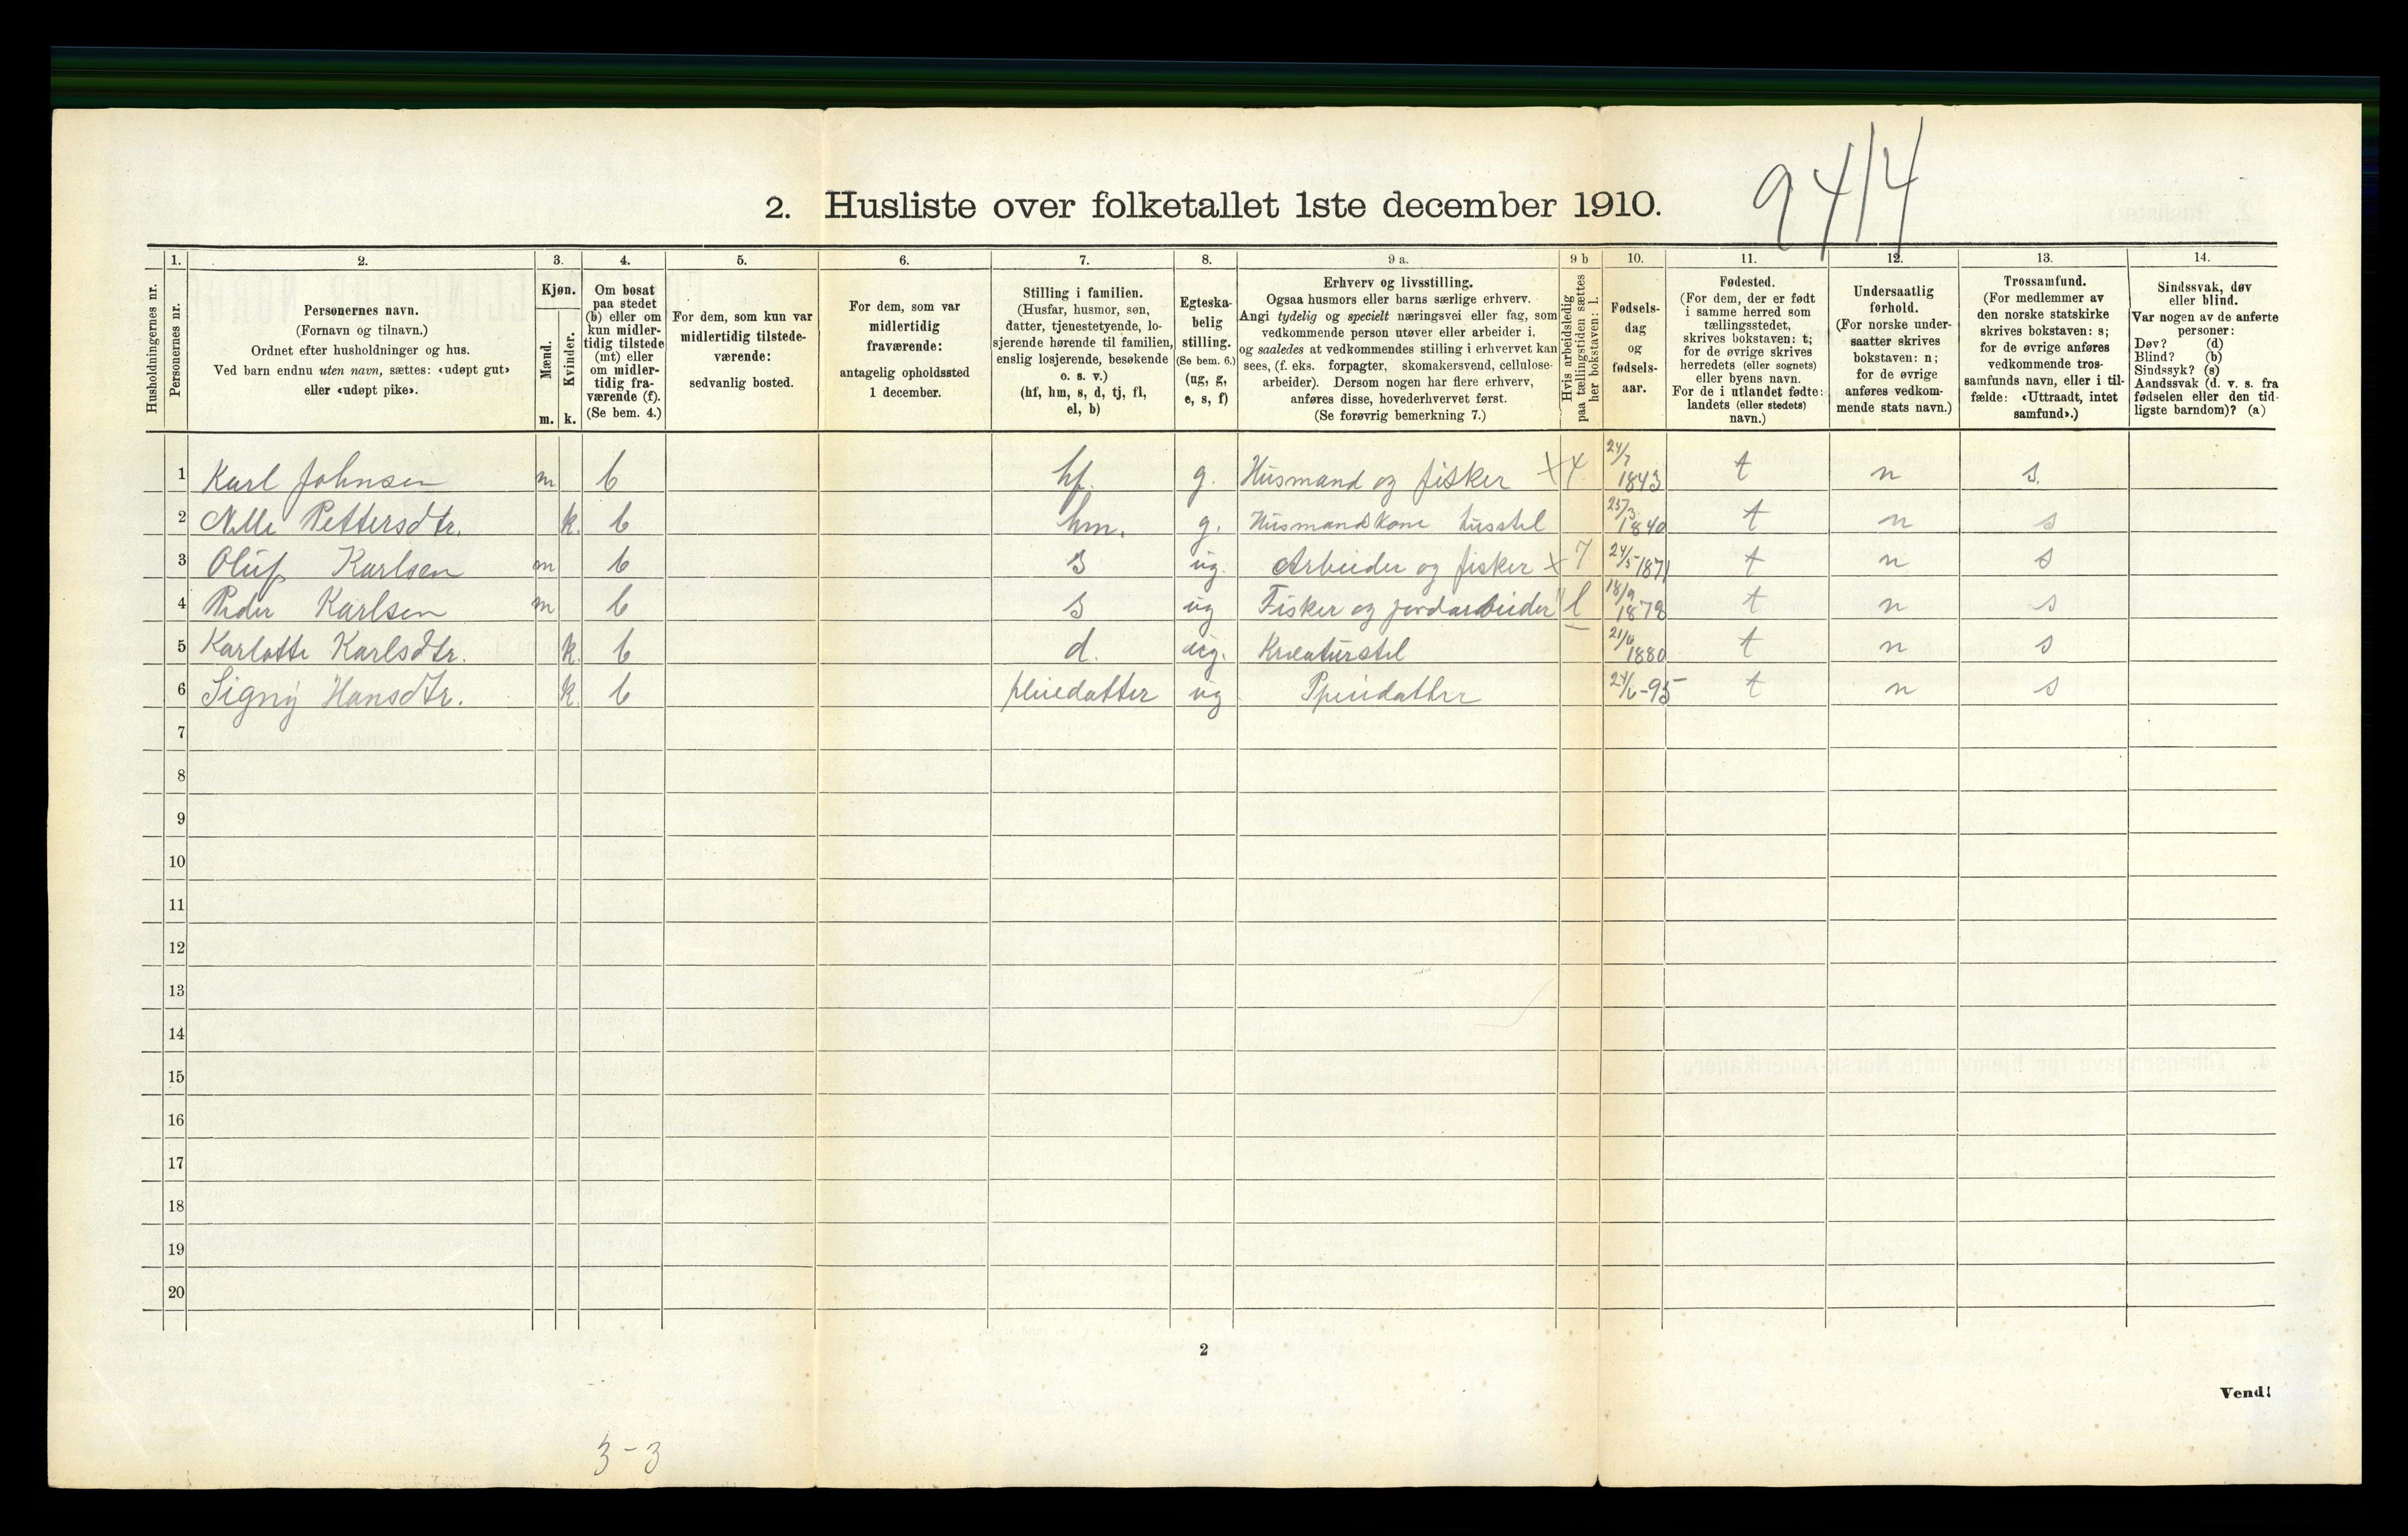 2. Husliste over folketallet 1ste december 1910.
94/4
Husholdningernes nr.
1.
Personernes nr.
2.
Personernes navn.
(Fornavn og tilnavn.)
Ordnet efter husholdninger og hus.
Ved barn endnu uten navn, sættes: «udøpt gut»
eller «udøpt pike».
3.
Kjøn.
Mænd.
Kvinder.
m. k.
4.
Om bosat
paa stedet
(b) eller om
kun midler-
tidig tilstede
(mt) eller
om midler-
tidig fra-
værende (f).
(Se bem. 4.)
5.
For dem, som kun var
midlertidig tilstede-
værende:
sedvanlig bosted.
6.
For dem, som var
midlertidig
fraværende:
antagelig opholdssted
1 december.
7.
Stilling i familien.
(Husfar, husmor, søn,
datter, tjenestetyende, lo-
sjerende hørende til familien,
enslig losjerende, besøkende
o. s. v.)
(hf, hm, s, d, tj, fl,
el, b)
8.
Egteska-
belig
stilling.
(Se bem. 6.)
(ug, g,
e, s, f)
9 a.
Erhverv og livsstilling.
Ogsaa husmors eller barns særlige erhverv.
Angi tydelig og specielt næringsvei eller fag, som
vedkommende person utøver eller arbeider i,
og saaledes at vedkommendes stilling i erhvervet kan
sees, (f. eks. forpagter, skomakersvend, cellulose-
arbeider). Dersom nogen har flere erhverv,
anføres disse, hovederhvervet først.
(Se forøvrig bemerkning 7.)
9 b
Hvis arbeidsledig
paa tællingstiden sættes
her bokstaven: l.
10.
Fødsels-
dag
og
fødsels-
aar.
11.
Fødested.
(For dem, der er født
i samme herred som
tællingsstedet,
skrives bokstaven: t;
for de øvrige skrives
herredets (eller sognets)
eller byens navn.
For de i utlandet fødte:
landets (eller stedets)
navn.)
12.
Undersaatlig
forhold.
(For norske under-
saatter skrives
bokstaven: n;
for de øvrige
anføres vedkom-
mende stats navn.)
13.
Trossamfund.
(For medlemmer av
den norske statskirke
skrives bokstaven: s;
for de øvrige anføres
vedkommende tros-
samfunds navn, eller i til-
fælde: «Uttraadt, intet
samfund».)
14.
Sindssvak, døv
eller blind.
Var nogen av de anførte
personer:
Døv? (d)
Blind? (b)
Sindssyk? (s)
Aandssvak (d. v. s. fra
fødselen eller den tid-
ligste barndom)? (a)
1 Karl Johnsen m b hf. g. Husmand og fisker 24/7 1843 t n s.
2 Pettersdtr. k. b hm. g. Husmandskone husstel 25/3 1840 t n s
3 Oluf Karlsen m b s ug. Arbeider og fisker 24/5 1871 t n s
4 Peder Karlsen m b s ug Fisker og jordarbeider l 18/9 1878 t n s
5 Karlotte Karlsdtr. k. b d. ug. Kreaturstel 1880 t n s
6 Signy Hansdtr. k. b pleiedatter ug 24/6-95 t n s
7
8
9
10
11
12
13
14
15
16
17
18
19
20
2
Vend!
3-3